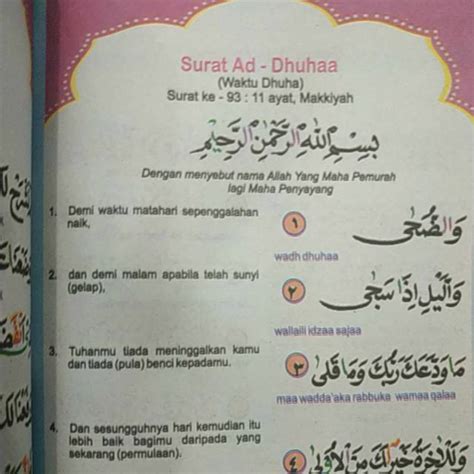 Surat Ad - Dhuhaa
(Waktu Dhuha)
Surat ke - 93 : 11 ayat, Makkiyah
بِسْمِ اللهِ الرَّحْمٰنِ الرَّحِيْمِ
Dengan menyebut nama Allah Yang Maha Pemurah
lagi Maha Penyayang
1. Demi waktu matahari sepenggalahan
naik,
وَالضُّحٰى ١
wadh dhuhaa
2. dan demi malam apabila telah sunyi
(gelap),
وَالَّيْلِ اِذَا سَجٰى ٢
wallaili idzaa sajaa
3. Tuhanmu tiada meninggalkan kamu
dan tiada (pula) benci kepadamu.
مَا وَدَّعَكَ رَبُّكَ وَمَا قَلٰى ٣
maa wadda'aka rabbuka wamaa qalaa
4. Dan sesungguhnya hari kemudian itu
lebih baik bagimu daripada yang
sekarang (permulaan).
وَلَلْاٰخِرَةُ خَيْرٌ لَّكَ مِنَ الْاُوْلٰى ٤